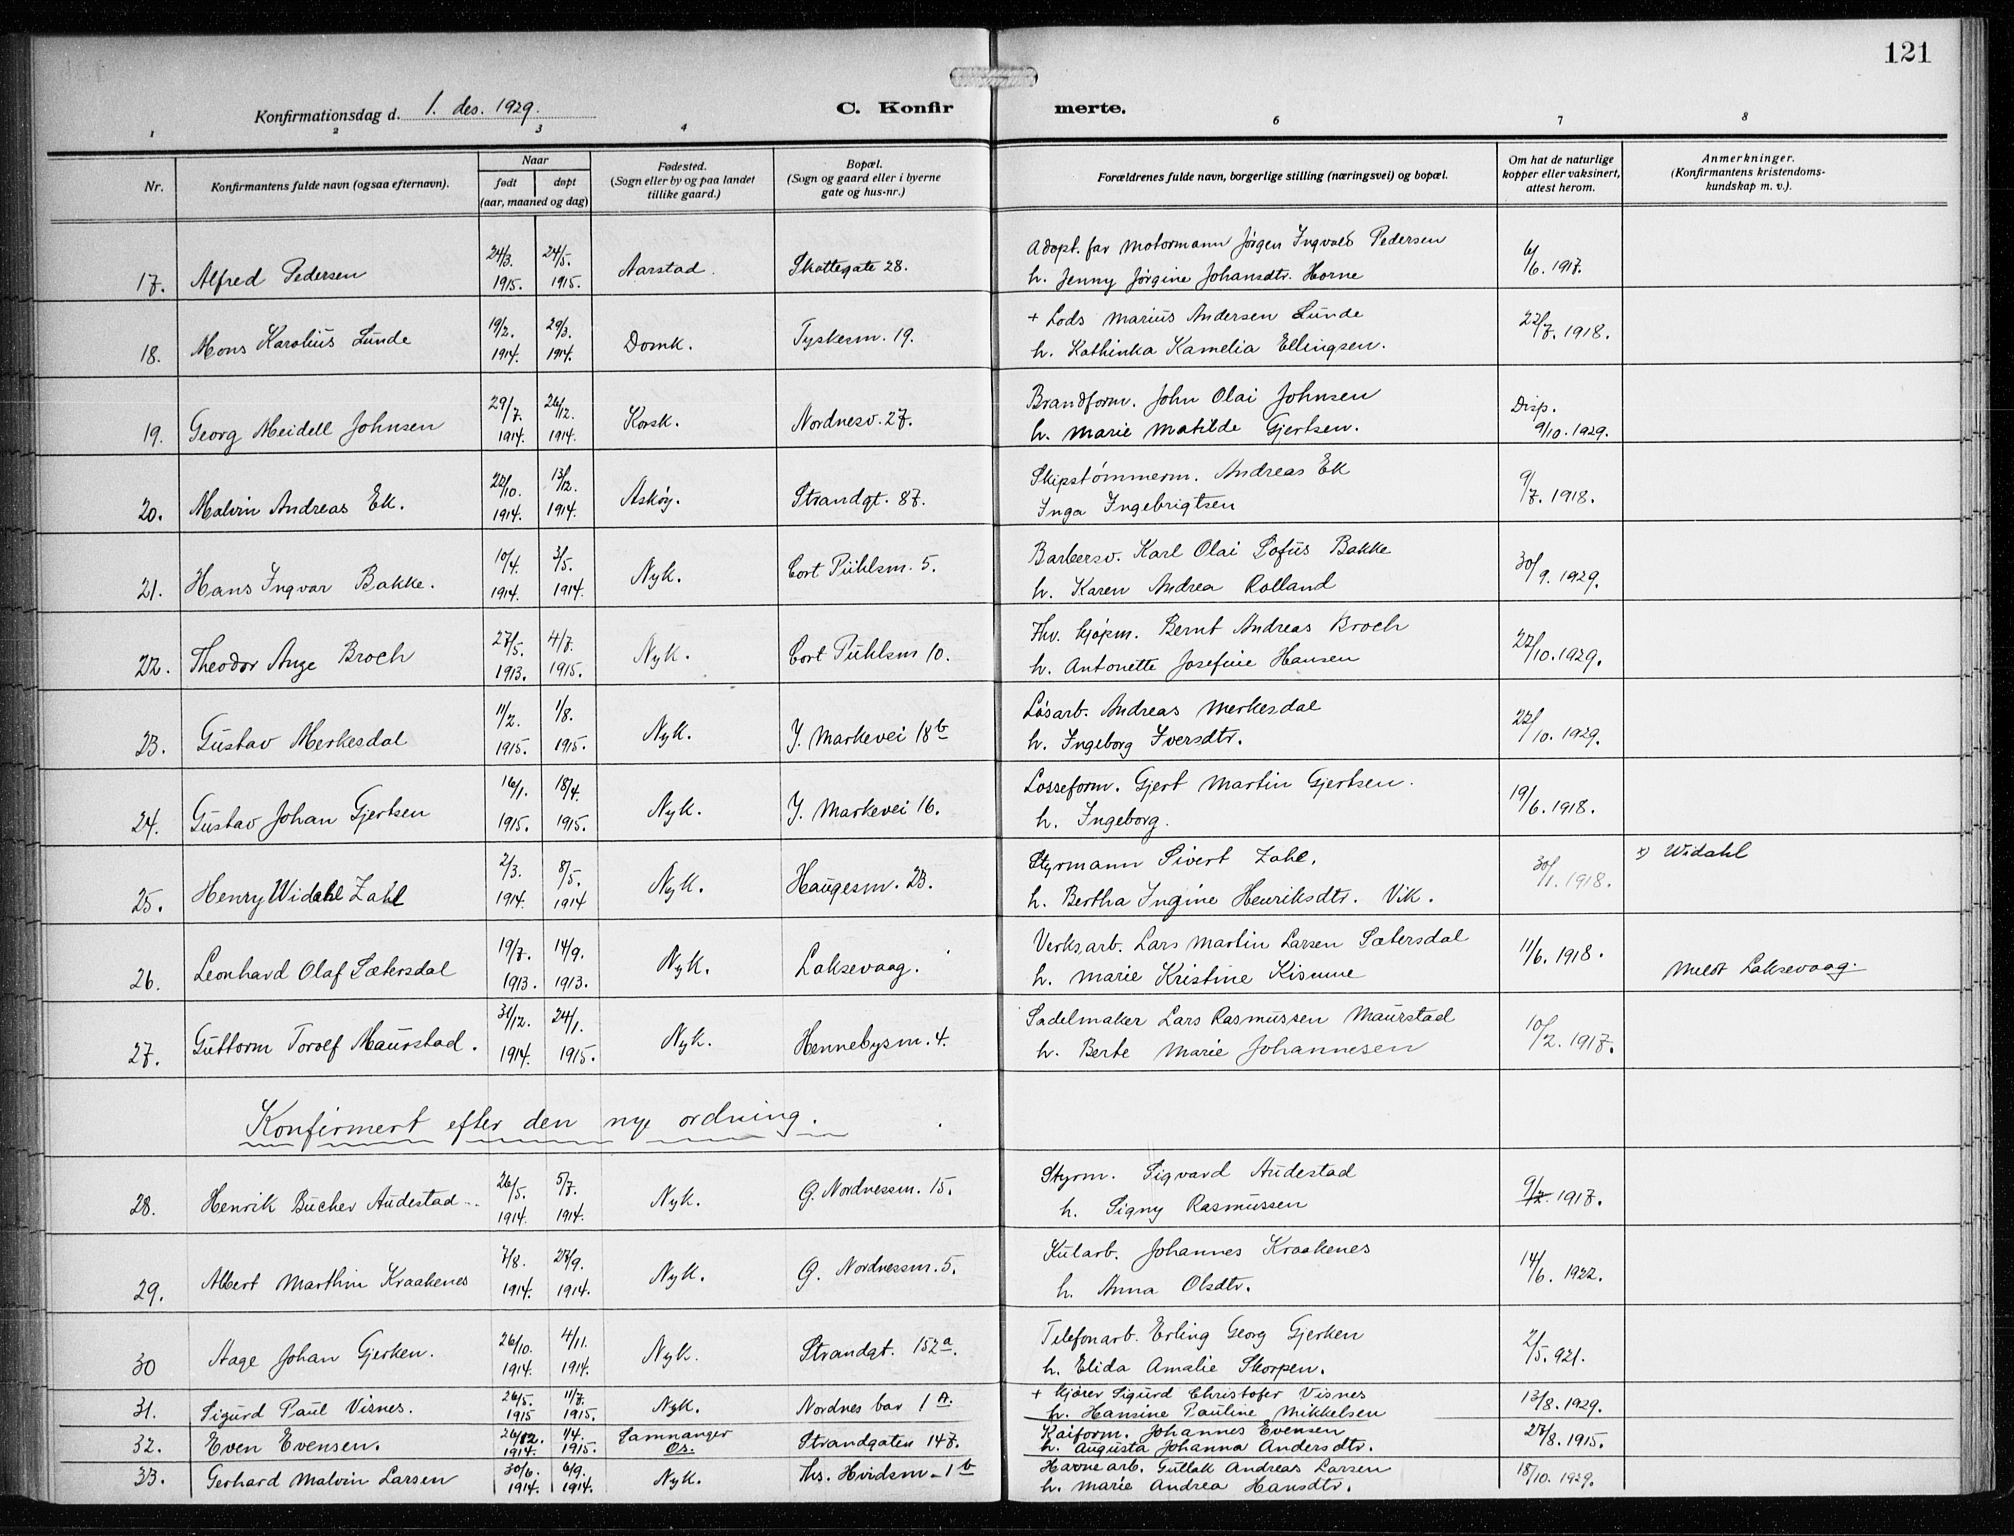 121
Konfirmationsdag d. 1. des. 1929. C. Konfirmerte.
1 2 3 4 6 7 8
Nr. Konfirmantens fulde navn (ogsaa efternavn). Naar født døpt (aar, maaned og dag) Fødested. (Sogn eller by og paa landet tillike gaard.) Bopæl. (Sogn og gaard eller i byerne gate og hus-nr.) Forældrenes fulde navn, borgerlige stilling (næringsvei) og bopæl. Om hat de naturlige kopper eller vaksinert, attest herom. Anmerkninger. (Konfirmantens kristendomskundskap m. v.).
17. Alfred Pedersen 24/3. 1915. 24/5. 1915. Aarstad. Skottegate 28. Adopt. far Motormann Jørgen Ingvald Pedersen h. Jenny Jørgine Johansdtr. Horne 6/6. 1917.
18. Mons Karolius Lunde 19/2. 1914. 29/3. 1914. Domk. Tyskesm. 19. + Lods Marius Andersen Lunde h. Kathinka Kamelia Ellingsen. 22/7. 1918.
19. Georg Meidell Johnsen 29/7. 1914. 26/12. 1914. Korsk. Nordnesv. 27. Brandform. John Olai Johnsen h. Marie Matilde Gjertsen. Disp. 9/10. 1929.
20. Malvin Andreas Ek. 22/10. 1914. 13/12. 1914. Askøy. Strandgt. 87. Skipstømmerm. Andreas Ek Inga Ingebrigtsen 9/7. 1918.
21. Hans Ingvar Bakke. 10/4. 1914. 3/5. 1914. Nyk. Cort Piihlsm. 5. Barbersv. Karl Olai Sofus Bakke h. Karen Andrea Rolland 30/9. 1929.
22. Theodor Ange Broch 27/5. 1913. 4/7. 1915. Nyk. Cort Piihlsm 10. Fhv. kjøpm. Bernt Andreas Broch h. Antonette Josefine Hansen 22/10. 1929.
23. Gustav Merkesdal 11/2. 1915. 1/8. 1915. Nyk. Y. Markevei 18b Løsarb. Andreas Merkesdal h. Ingeborg Iversdtr. 22/10. 1929.
24. Gustav Johan Gjertsen 16/1. 1915. 18/4. 1915. Nyk. Y. Markevei 16. Losseform. Gjert Martin Gjertsen. h. Ingeborg. 19/6. 1918.
25. Henry Widahl Zahl 2/3. 1914. 8/5. 1914 Nyk. Haugesm. 23. Styrmann Sivert Zahl. h. Bertha Ingine Henriksdtr. Vik. 30/1. 1918. x) Widahl
26. Leonhard Olaf Sætersdal 19/7. 1913. 14/9. 1913. Nyk. Laksevaag. Verks.arb. Lars Martin Larsen Sætersdal h. Marie Kristine Kismue 11/6. 1918. Meldt Laksevaag.
27. Guttorm Torolf Maurstad. 31/12. 1914. 24/1. 1915. Nyk. Hennebysm. 4. Sadelmaker Lars Rasmussen Maurstad h. Berte Marie Johannesen 10/2. 1917.
Konfirmert efter den nye ordning.
28. Henrik Bucher Audestad 26/5. 1914. 5/7. 1914. Nyk. G. Nordnessm. 15. Styrm. Sigvard Audestad h. Signy Rasmussen 9/7. 1917.
29. Albert Marthin Kraakenes 7/8. 1914. 27/9. 1914. Nyk. G. Nordnessm. 5. Kularb. Johannes Kraakenes h. Anna Olsdtr. 14/6. 1922.
30 Aage Johan Gjerken. 26/10. 1914. 4/11. 1914. Nyk. Strandgt. 152a. Telefonarb. Erling Georg Gjerken h. Elida Amalie Skorpen. 2/5. 921.
31. Sigurd Paul Visnes. 26/5. 1915 11/7. 1915. Nyk. Nordnes bar 1A. + kjører Sigurd Christofer Visnes h. Hansine Pauline Mikkelsen 13/8. 1929.
32. Even Evensen. 26/12. 1914. 1/4. 1915. Samnanger Os. Strandgaten 147. Kaiform. Johannes Evensen h. Augusta Johanna Andersdtr. 27/8. 1915.
33. Gerhard Malvin Larsen 30/6. 1914. 6/9. 1914. Nyk. Ths. Hvidsm. 1b Havnearb. Gullak Andreas Larsen h. Marie Andrea Hansdtr. 18/10. 1929.